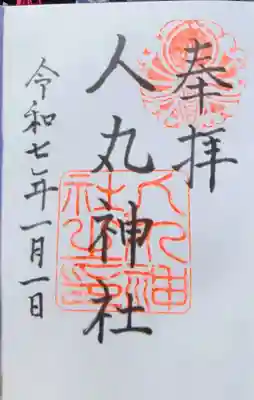 奉拝
人丸神社
令和七年一月一日
人丸神社之印